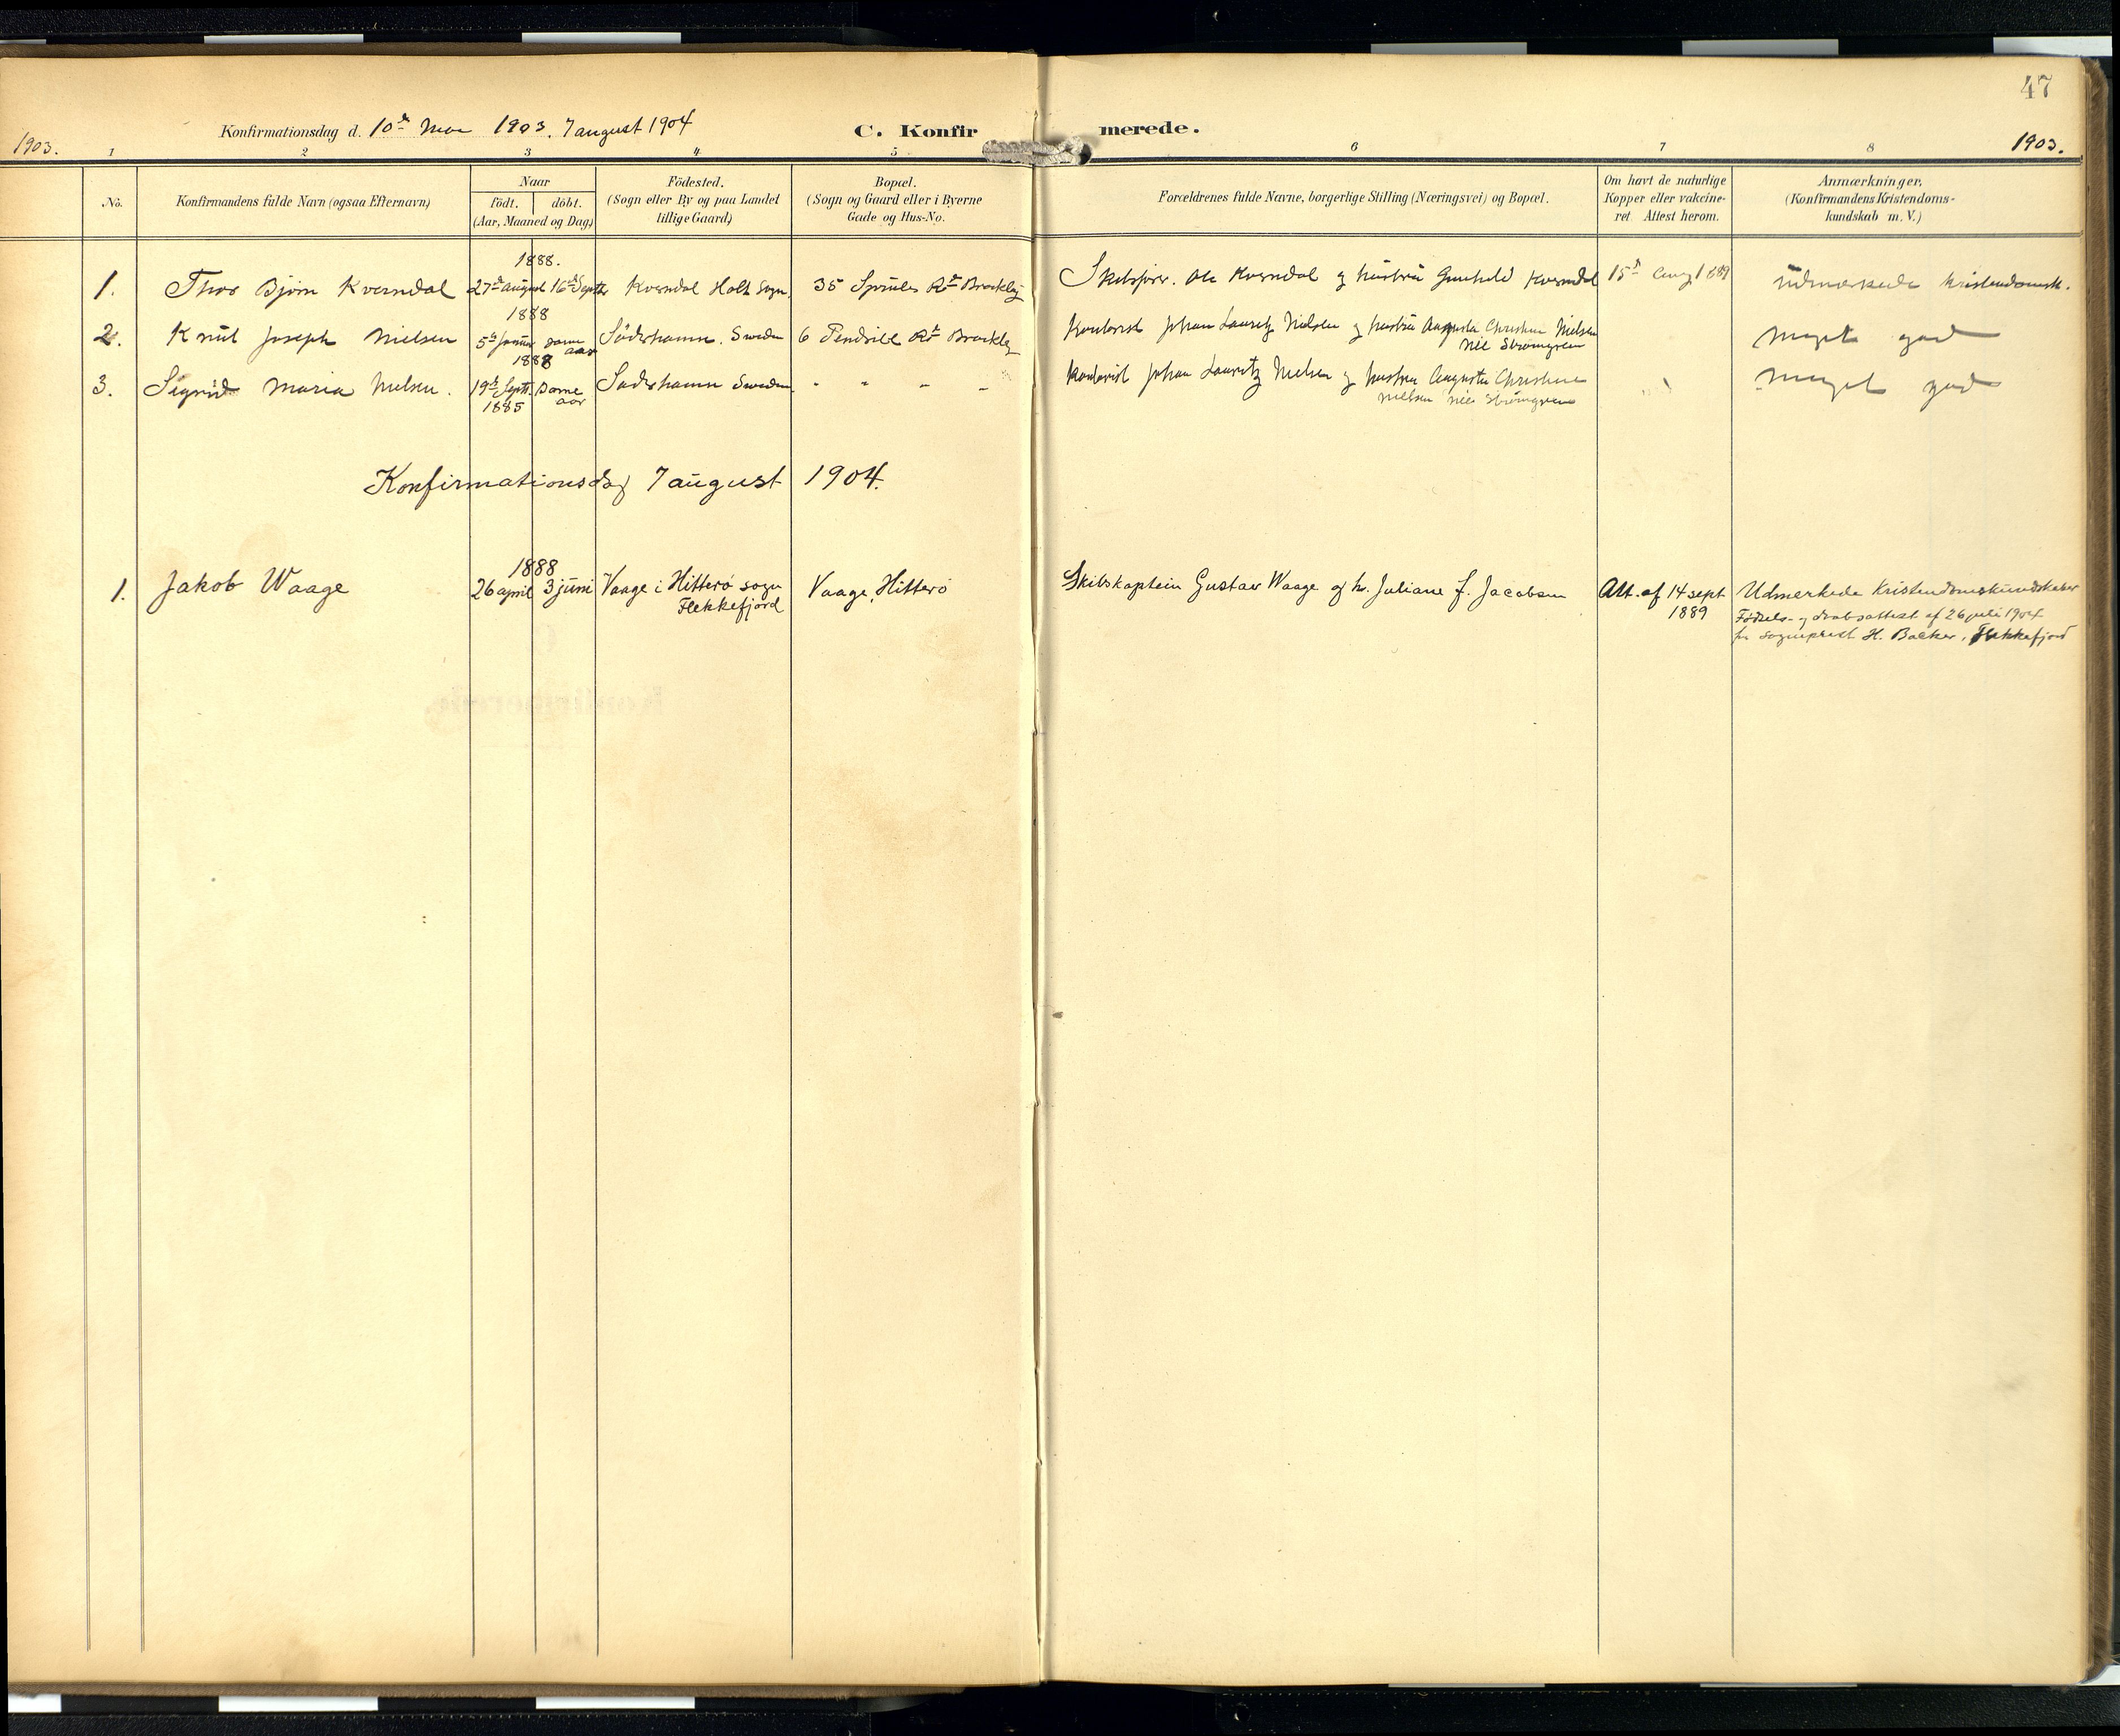 47
Konfirmationsdag d. 10de Mai 1903. 7 august 1904 C. Konfirmerede.
1903. 1 2 3 4 5 6 7 8 1903.
No. Konfirmandens fulde Navn (ogsaa Efternavn) Naar födt. döbt. (Aar, Maaned og Dag) Födested. (Sogn eller By og paa Landet tillige Gaard) Bopæl. (Sogn og Gaard eller i Byerne Gade og Hus-No. Forældrenes fulde Navne, borgerlige Stilling (Næringsvei) og Bopæl. Om havt de naturlige Kopper eller vakcineret. Attest herom. Anmærkninger. (Konfirmandens Kristendomskundskab m. V.)
1888.
1. Thor Bjørn Kverndal 27de august 16de Septbr Kverndal Holt Sogn. 35 Sprules Rd Brockley Skibsfører. Ole Kverndal og hustru Gunhild Kverndal 15de Aug 1889 udmærkede kristendomsk.
1888
2. Knut Joseph Nielsen 5te samme aar Söderhamn. Sweden 6 Pendrill Rd Brockley Kontorist Johan Lauritz Nielsen og hustru Augusta Christine Nielsen
née Strömgren meget god
1888
3. Sigrid Maria Nielsen. 19de Septr. Samme aar Söderhamn Sweden " " " " Kontorist Johan Lauritz Nielsen og hustru Augusta Christine
Nielsen née Strömgren meget god
1885
Konfirmationsdag 7 august 1904.
1888
1. Jakob Waage 26 april 3 juni Vaage i Hitterø sogn Flekkefjord Vaage, Hitterø Skibskaptein Gustav Waage og h. Juliane f. Jacobsen Att. af 14 sept 1889 Udmerkede Kristendomskundskaber
Fødsels- og daabsattest af 26 juli 1904
fra sogneprest H. Balker, Flekkefjord